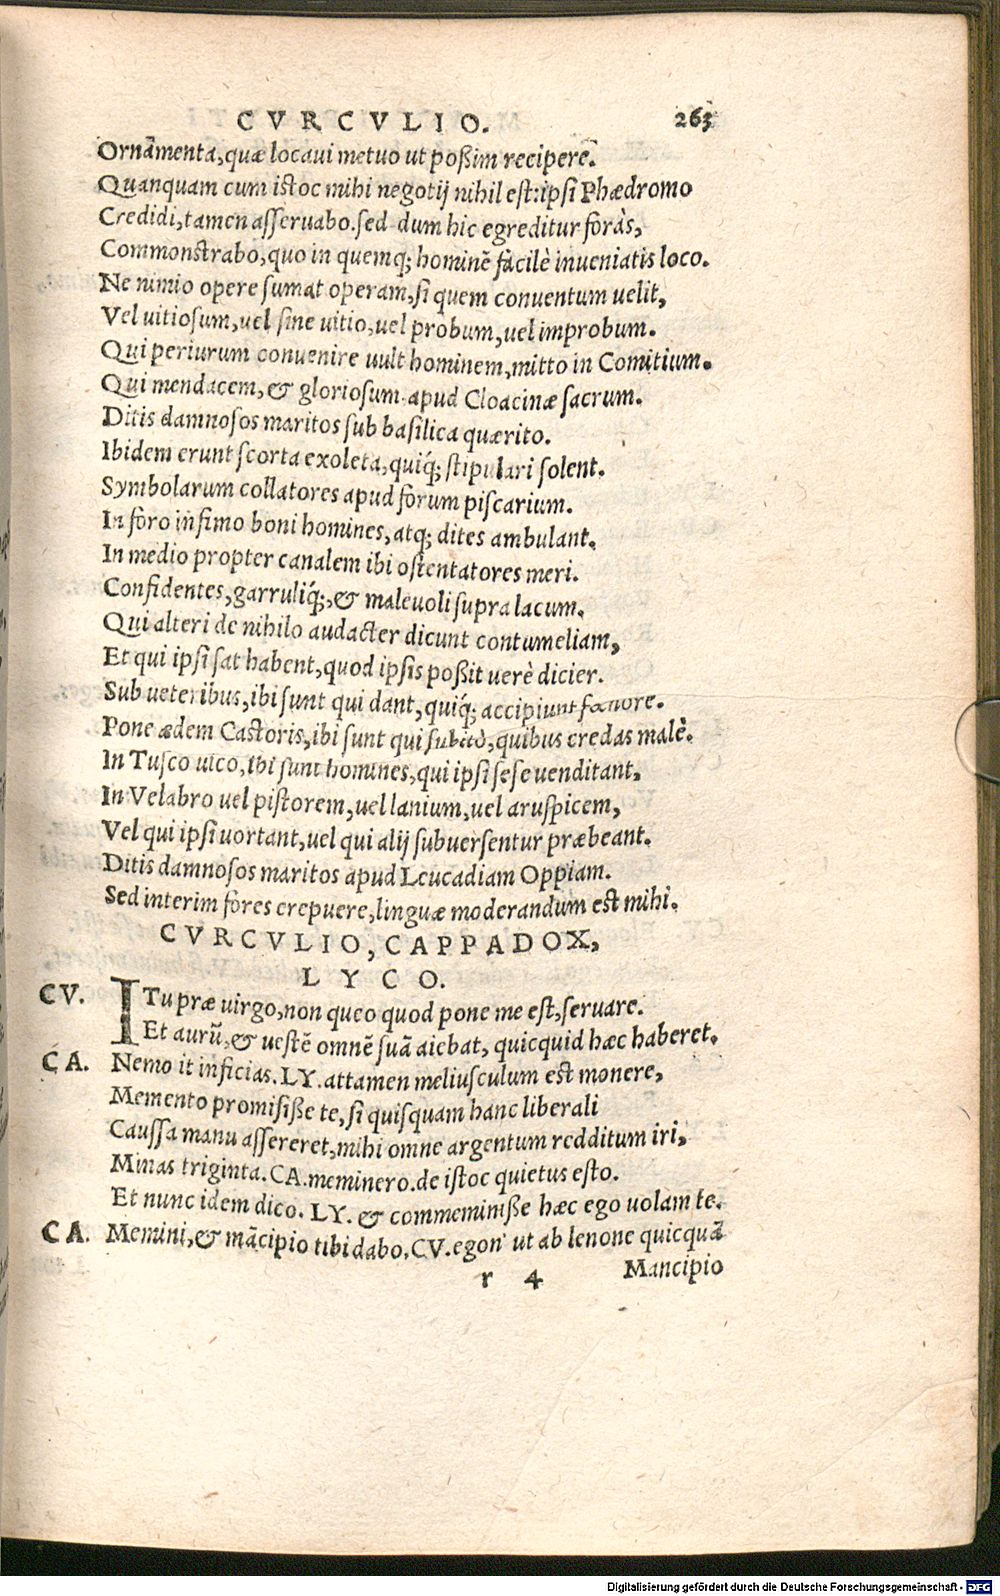 CVRCVLIO. 263
Ornamenta, quæ locaui metuo ut poßim recipere.
Quanquam cum istoc mihi negotij nihil est: ipsi Phædromo
Credidi, tamen asseruabo. sed dum hic egreditur foràs,
Commonstrabo, quo in quemq; hominẽ facilè inueniatis loco.
Ne nimio opere sumat operam, si quem conuentum uelit,
Vel uitiosum, uel sine uitio, uel probum, uel improbum.
Qui periurum conuenire uult hominem, mitto in Comitium.
Qui mendacem, & gloriosum apud Cloacinæ sacrum.
Ditis damnosos maritos sub basilica quærito.
Ibidem erunt scorta exoleta, quiq́; stipulari solent.
Symbolarum collatores apud forum piscarium.
In foro infimo boni homines, atq; dites ambulant.
In medio propter canalem ibi ostentatores meri.
Confidentes, garruliq́;, & maleuoli supra lacum.
Qui alteri de nihilo audacter dicunt contumeliam,
Et qui ipsi sat habent, quod ipsis poßit uerè dicier.
Sub ueteribus, ibi sunt qui dant, quiq́; accipiunt fœnore.
Pone ædem Castoris, ibi sunt qui subitò, quibus credas malè.
In Tusco uico, ibi sunt homines, qui ipsi sese uenditant,
In Velabro uel pistorem, uel lanium, uel aruspicem,
Vel qui ipsi uortant, uel qui alij subuersentur præbeant.
Ditis damnosos maritos apud Leucadiam Oppiam.
Sed interim fores crepuere, linguæ moderandum est mihi.
CVRCVLIO, CAPPADOX,
LYCO.
CV. I Tu præ uirgo, non queo quod pone me est, seruare.
Et aurũ, & uestẽ omnẽ suã aiebat, quicquid hæc haberet.
CA. Nemo it inficias. LY. attamen meliusculum est monere,
Memento promisiße te, si quisquam hanc liberali
Caussa manu assereret, mihi omne argentum redditum iri,
Minas triginta. CA. meminero. de istoc quietus esto.
Et nunc idem dico. LY. & commeminiße hæc ego uolam te.
CA. Memini, & mãcipio tibi dabo. CV. egon' ut ab lenone quicquã
r 4 Mancipio
Digitalisierung gefördert durch die Deutsche Forschungsgemeinschaft - DFG